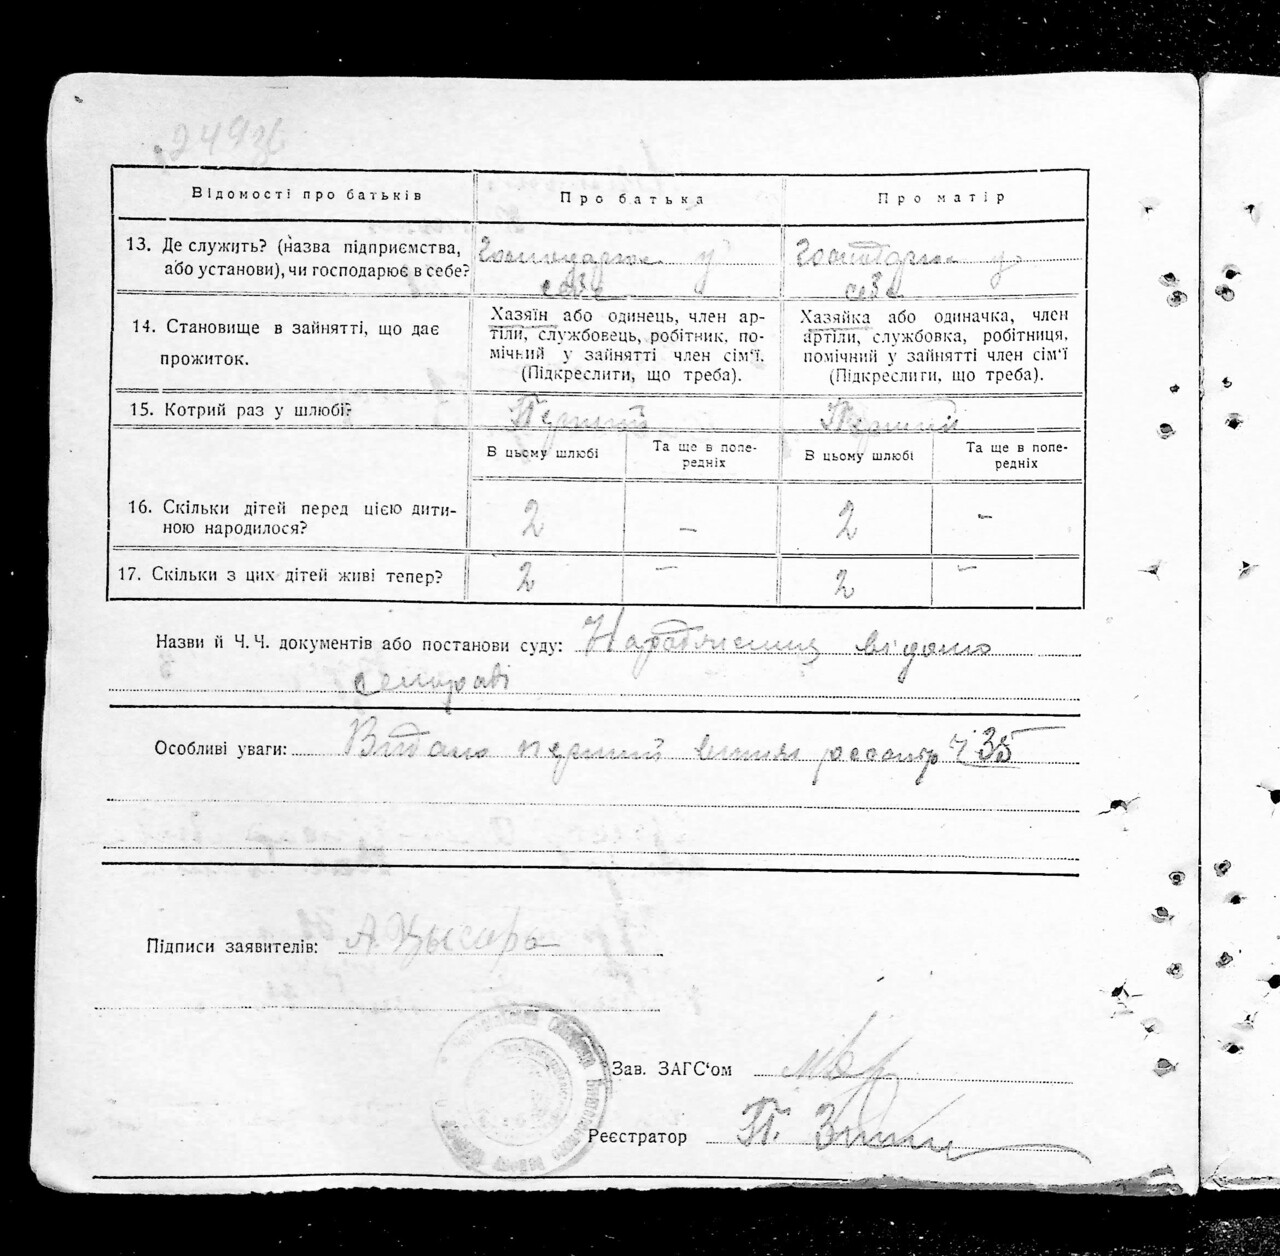 2493б
Відомості про батьків
Про батька
Про матір
13. Де служить? (назва підприємства,
або установи), чи господарює в себе?
Господарює у
себе
Господарює у
себе
14. Становище в зайнятті, що дає
прожиток.
Хазяїн або одинець, член ар-
тіли, службовець, робітник, по-
мічний у зайнятті член сім'ї.
(Підкреслити, що треба).
Хазяйка або одиначка, член
артіли, службовка, робітниця,
помічний у зайнятті член сім'ї
(Підкреслити, що треба).
15. Котрий раз у шлюбі?
Перший
Перший
В цьому шлюбі
Та ще в попе-
редніх
В цьому шлюбі
Та ще в попе-
редніх
16. Скільки дітей перед цією дити-
ною народилося?
2
–
2
–
17. Скільки з цих дітей живі тепер?
2
–
2
–
Назви й Ч. Ч. документів або постанови суду: відомо
Особливі уваги: Видано перший Ч 35
Підписи заявителів: А. Цысарь
Зав. ЗАГС'ом
Реєстратор П.